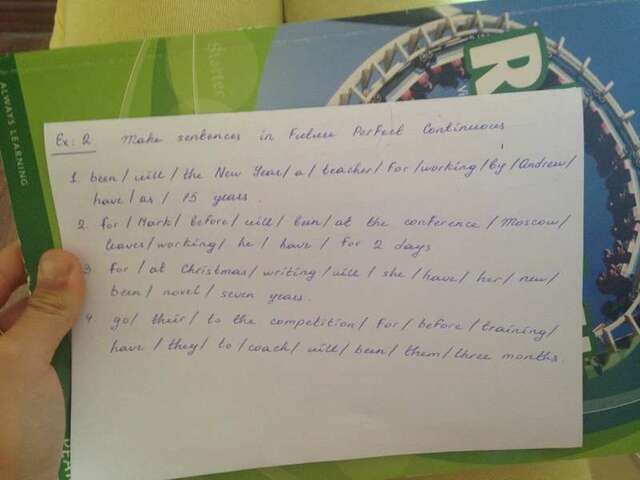 ALWAYS LEARNING
Starter
R
Ex: 2 Make sentences in Future Perfect Continuous
1. been / will / the New Year / a / teacher / for / working / by / Andrew /
have / as / 15 years.
2. for / Mark / before / will / been / at the conference / Moscow /
leaves / working / he / have / for 2 days
3 for / at Christmas / writing / will / she / have / her / new /
been / novel / seven years.
4. go / their / to the competition / for / before / training /
have / they / to / coach / will / been / them / three months.